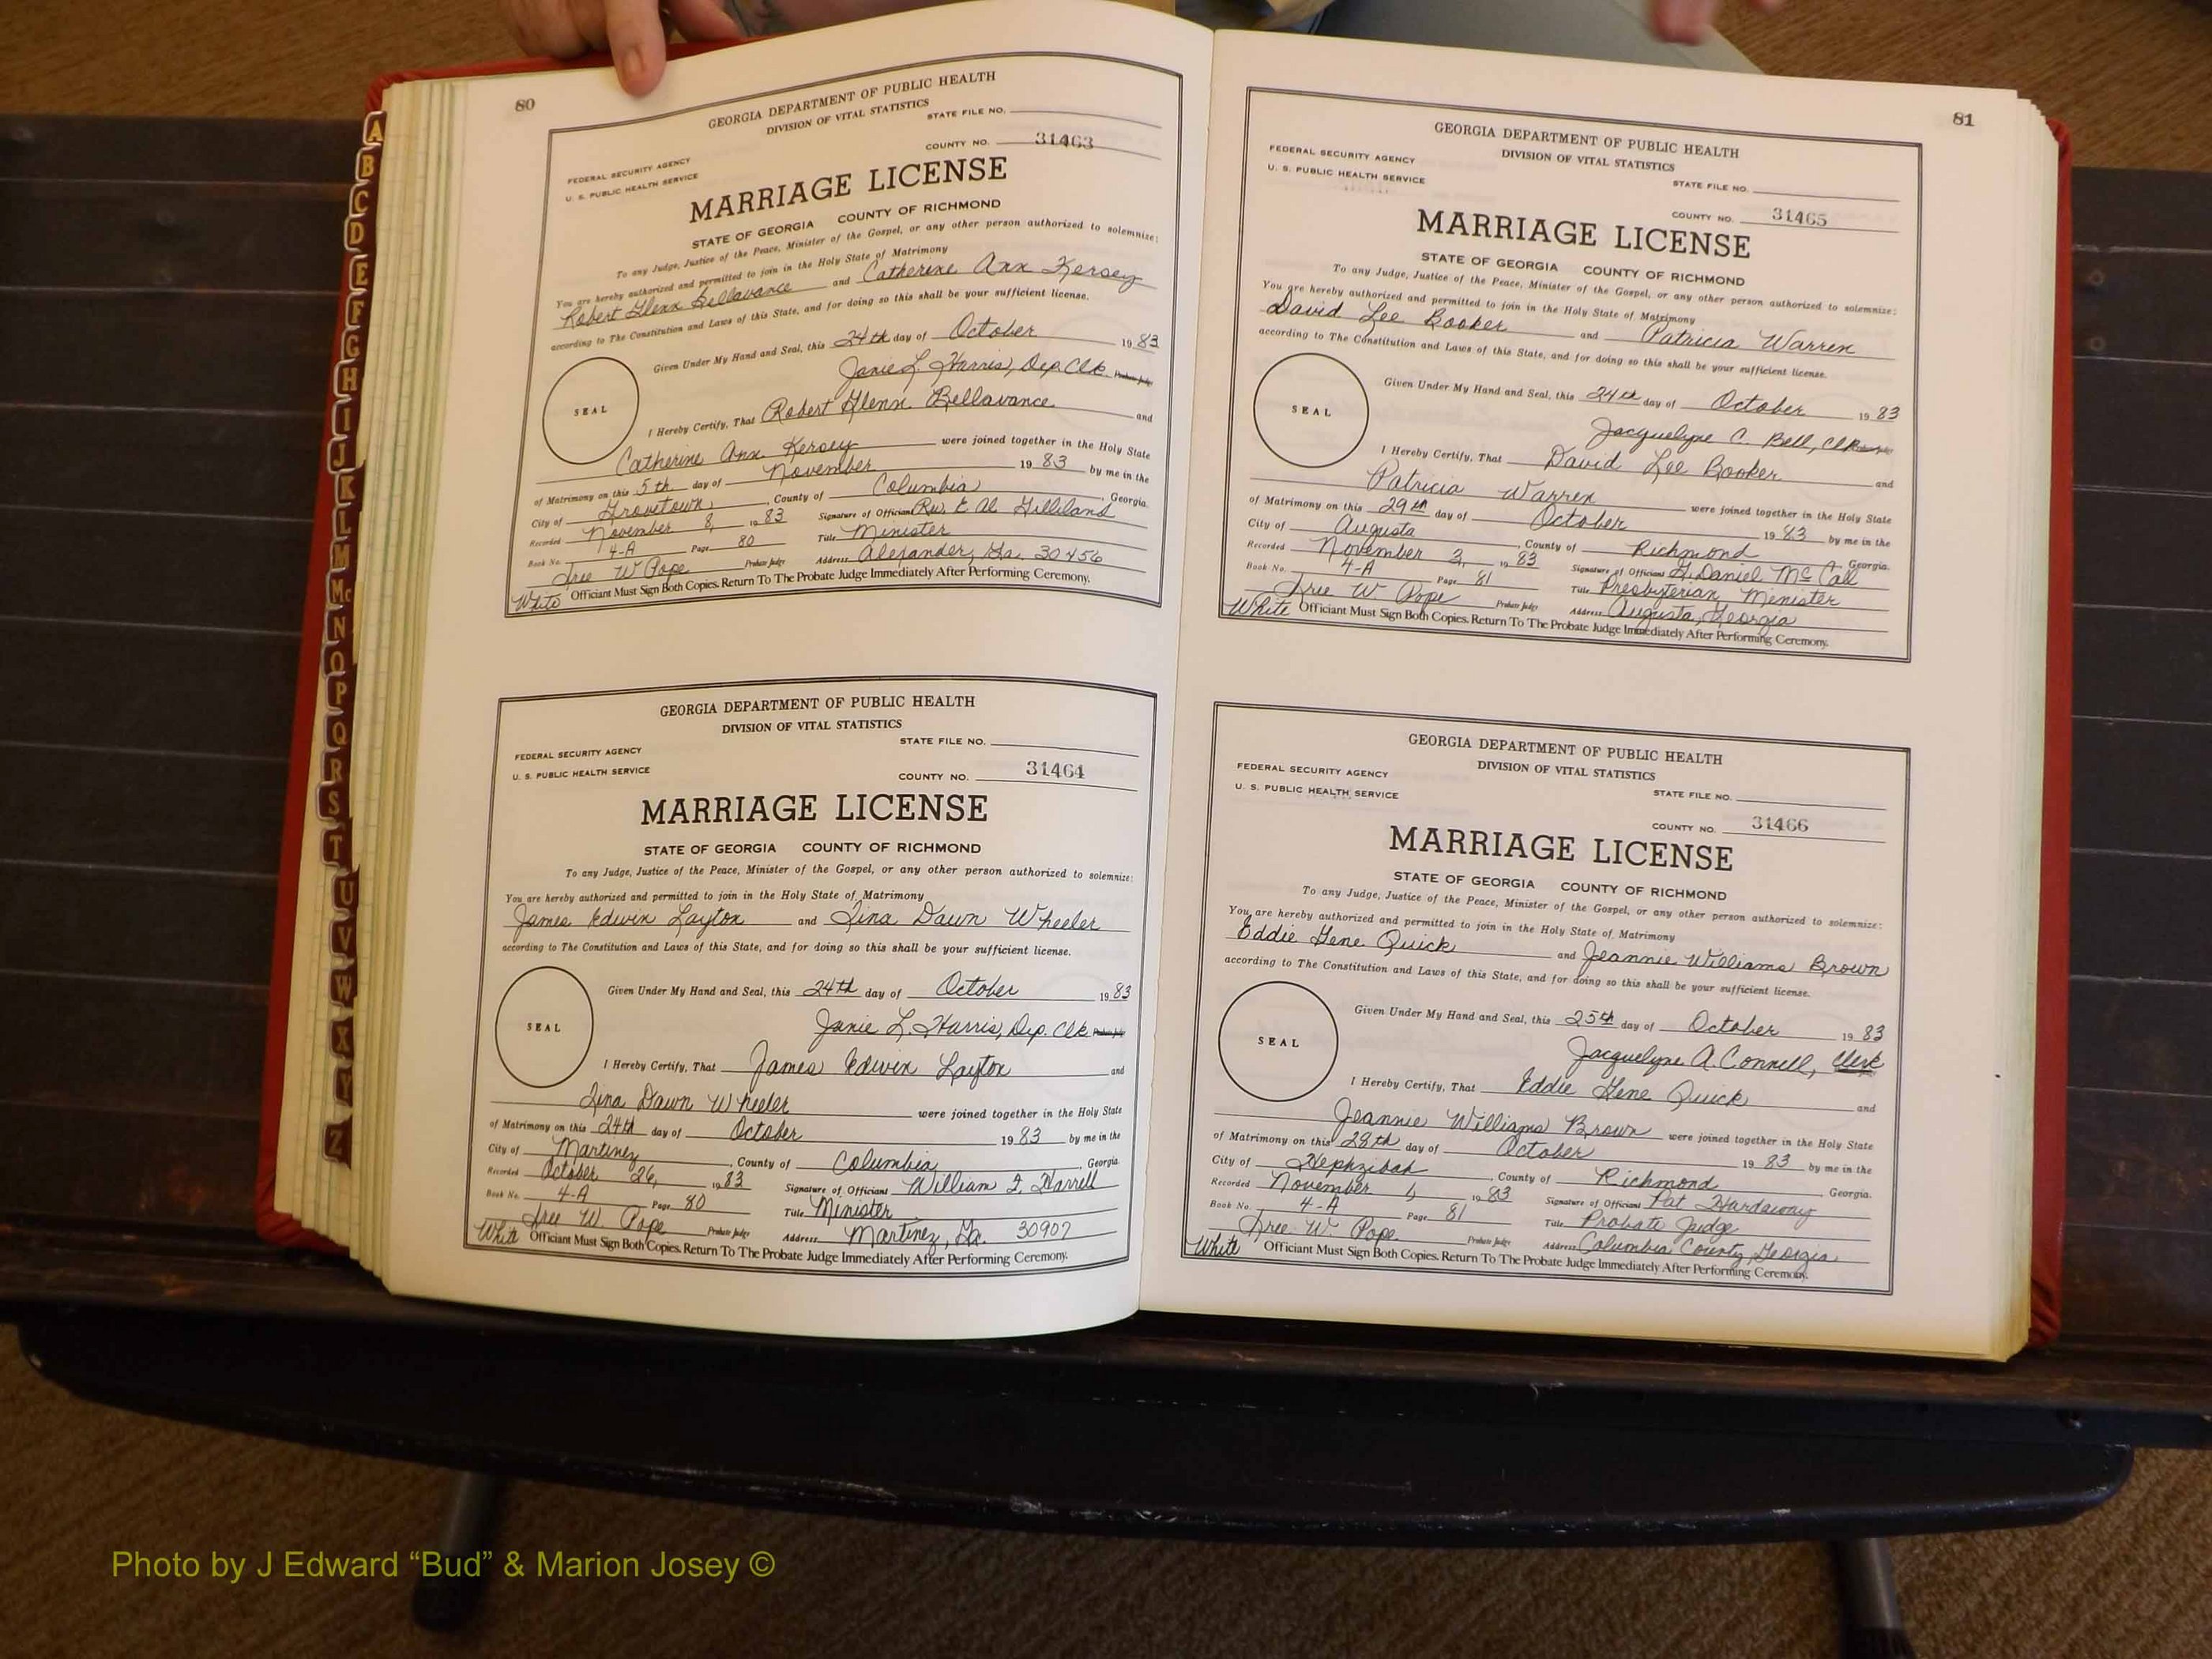 80
GEORGIA DEPARTMENT OF PUBLIC HEALTH
DIVISION OF VITAL STATISTICS
STATE FILE NO.
COUNTY NO. 31463
FEDERAL SECURITY AGENCY
U. S. PUBLIC HEALTH SERVICE
MARRIAGE LICENSE
STATE OF GEORGIA COUNTY OF RICHMOND
To any Judge, Justice of the Peace, Minister of the Gospel, or any other person authorized to solemnize:
You are hereby authorized and permitted to join in the Holy State of Matrimony
Robert Glenn Bellavance and Catherine Ann Kersey
according to The Constitution and Laws of this State, and for doing so this shall be your sufficient license.
Given Under My Hand and Seal, this 24th day of October 1983
Janie L. Harris, Dep. Clk. Probate Judge
SEAL
I Hereby Certify, That Robert Glenn Bellavance and
Catherine Ann Kersey were joined together in the Holy State
of Matrimony on this 5th day of November 1983 by me in the
City of Grovetown, County of Columbia, Georgia.
Recorded November 8, 1983 Signature of Officiant Rev. E Al Gilliland
Book No. 4-A Page 80 Title Minister
Tree W Pope Probate Judge Address Alexander, Ga. 30456
White Officiant Must Sign Both Copies. Return To The Probate Judge Immediately After Performing Ceremony.
GEORGIA DEPARTMENT OF PUBLIC HEALTH
DIVISION OF VITAL STATISTICS
STATE FILE NO.
FEDERAL SECURITY AGENCY
U. S. PUBLIC HEALTH SERVICE
COUNTY NO. 31464
MARRIAGE LICENSE
STATE OF GEORGIA COUNTY OF RICHMOND
To any Judge, Justice of the Peace, Minister of the Gospel, or any other person authorized to solemnize:
You are hereby authorized and permitted to join in the Holy State of Matrimony
James Edwin Layton and Tina Dawn Wheeler
according to The Constitution and Laws of this State, and for doing so this shall be your sufficient license.
Given Under My Hand and Seal, this 24th day of October 1983
Janie L. Harris, Dep. Clk Probate Judge
SEAL
I Hereby Certify, That James Edwin Layton and
Tina Dawn Wheeler were joined together in the Holy State
of Matrimony on this 24th day of October 1983 by me in the
City of Martinez, County of Columbia, Georgia.
Recorded October 26, 1983 Signature of Officiant William Harrell
Book No. 4-A Page 80 Title Minister
Tree W. Pope Probate Judge Address Martinez, Ga. 30907
White Officiant Must Sign Both Copies. Return To The Probate Judge Immediately After Performing Ceremony.
81
GEORGIA DEPARTMENT OF PUBLIC HEALTH
DIVISION OF VITAL STATISTICS
FEDERAL SECURITY AGENCY
U. S. PUBLIC HEALTH SERVICE
STATE FILE NO.
COUNTY NO. 31465
MARRIAGE LICENSE
STATE OF GEORGIA COUNTY OF RICHMOND
To any Judge, Justice of the Peace, Minister of the Gospel, or any other person authorized to solemnize:
You are hereby authorized and permitted to join in the Holy State of Matrimony
David Lee Booker and Patricia Warren
according to The Constitution and Laws of this State, and for doing so this shall be your sufficient license.
Given Under My Hand and Seal, this 24th day of October 1983
Jacquelyne C. Bell, Clk Probate Judge
SEAL
I Hereby Certify, That David Lee Booker and
Patricia Warren were joined together in the Holy State
of Matrimony on this 29th day of October 1983 by me in the
City of Augusta, County of Richmond, Georgia.
Recorded November 3, 1983 Signature of Officiant Daniel McCall
Book No. 4-A Page 81 Title Presbyterian Minister
Tree W Pope Probate Judge Address Augusta, Georgia
White Officiant Must Sign Both Copies. Return To The Probate Judge Immediately After Performing Ceremony.
GEORGIA DEPARTMENT OF PUBLIC HEALTH
DIVISION OF VITAL STATISTICS
FEDERAL SECURITY AGENCY
U. S. PUBLIC HEALTH SERVICE
STATE FILE NO.
COUNTY NO. 31466
MARRIAGE LICENSE
STATE OF GEORGIA COUNTY OF RICHMOND
To any Judge, Justice of the Peace, Minister of the Gospel, or any other person authorized to solemnize:
You are hereby authorized and permitted to join in the Holy State of Matrimony
Eddie Gene Quick and Jeannie Williams Brown
according to The Constitution and Laws of this State, and for doing so this shall be your sufficient license.
Given Under My Hand and Seal, this 25th day of October 1983
Jacquelyne A. Connell, Clerk
SEAL
I Hereby Certify, That Eddie Gene Quick and
Jeannie Williams Brown were joined together in the Holy State
of Matrimony on this 28th day of October 1983 by me in the
City of Hephzibah, County of Richmond, Georgia.
Recorded November 1, 1983 Signature of Officiant Pat Hardaway
Book No. 4-A Page 81 Title Probate Judge
Tree W. Pope Probate Judge Address Columbia County, Georgia
White Officiant Must Sign Both Copies. Return To The Probate Judge Immediately After Performing Ceremony.
A
B
C
D
E
F
G
H
I
J
K
L
M
Mc
N
O
P
Q
R
S
T
U
V
W
X
Y
Z
Photo by J Edward “Bud” & Marion Josey ©